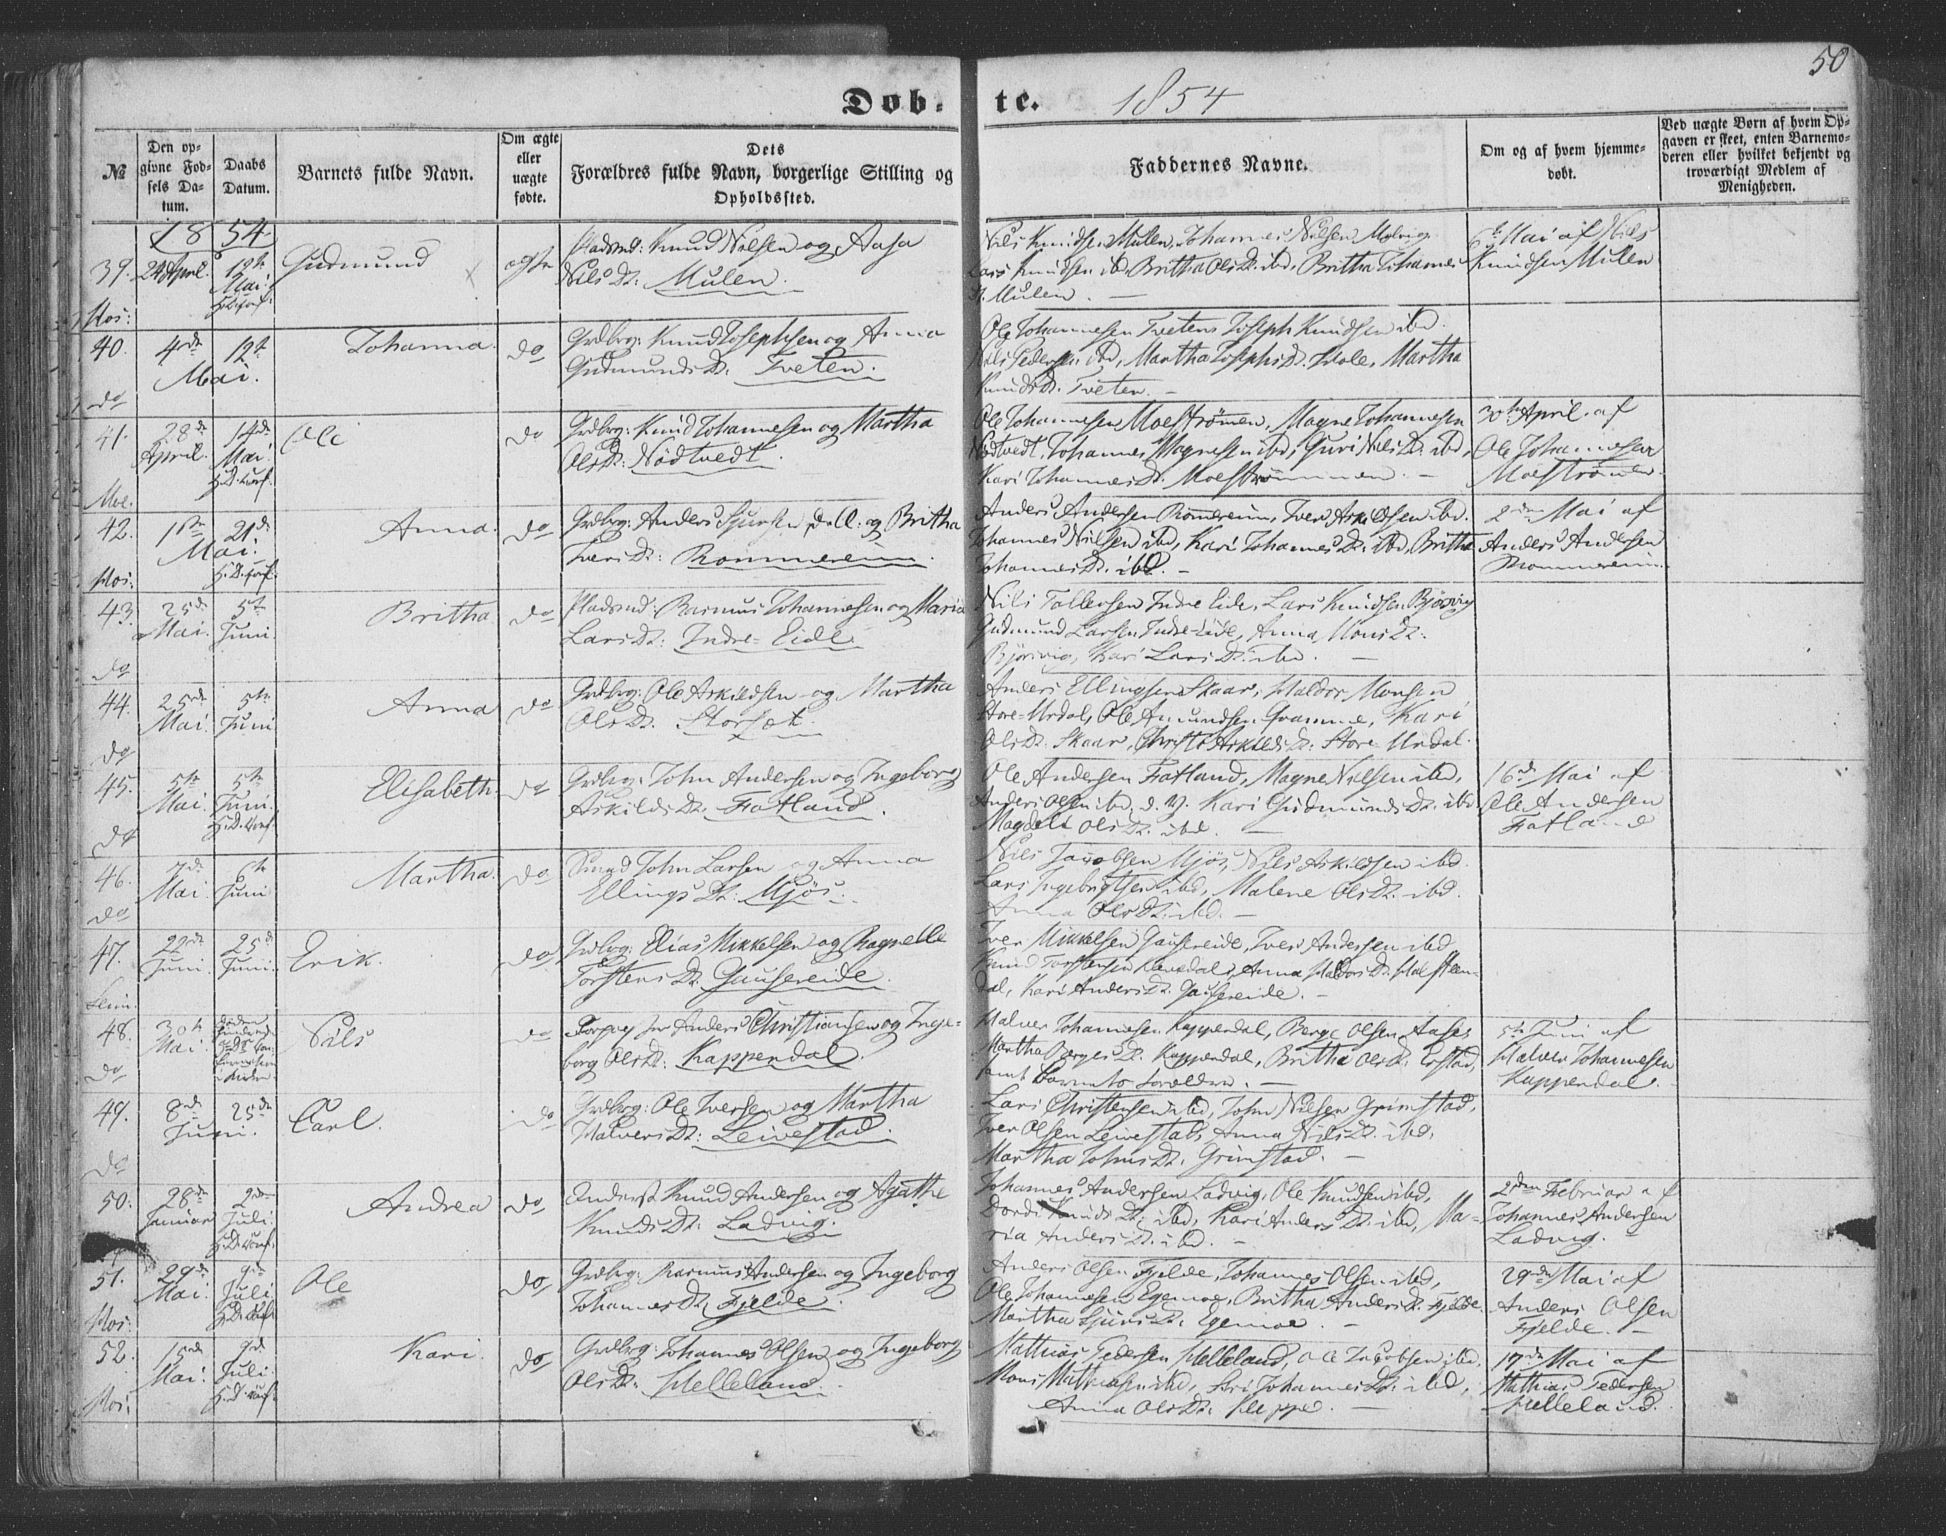 50
Dob. te. 1854
№
Den op-
givne Fød-
sels Da-
tum.
Daabs
Datum.
Barnets fulde Navn.
Om ægte
eller
uægte
fødte.
Dets
Forældres fulde Navn, borgerlige Stilling og
Opholdssted.
Faddernes Navne.
Om og af hvem hjemme-
døbt.
Ved uægte Børn af hvem Op-
gaven er skeet, enten Barnemo-
deren eller hvilket bekjendt og
troværdigt Medlem af
Menigheden.
1854
39. 24 April 12te Mai Gudmund ægte
Pladsmd: Knud Nilsen og Aasa
Nils Dt: Mulen.
Nils Knudsen Mulen, Johannes Nilsen
Lars Knudsen ibd, Britha Ols Dt. ibd, Britha Johannes
Dt. Mulen.
6te Mai af Nils
Knudsen Mulen
Hos:
40. 4de 12te Mai. Johanna do
Grdbrg: Knud Josephsen og Anna
Gudmunds Dt: Tveten.
Ole Johannesen Tveten, Joseph Knudsen ibd.
Nils Pedersen ibd, Martha Josephs Dt. Hole, Martha
Knuds Dt. Tveten.
do
41. 28de April 14de Mai Ole do
Grdbrg: Knud Johannesen og Martha
Ols Dt: Nödtvedt.
Ole Johannesen Moeströmen, Magne Johannesen
Nödtvedt, Johannes Magnesen ibd, Guri Nils Dt. ibd,
Kari Johannes Dt. Moeströmmen.
30te April af
Ole Johannesen
Moeströmen
Moe.
42. 1ste 21de Mai. Anna. do
Grdbrg: Anders Sjursen og Britha
Ivers Dt: Rommereim.
Anders Andersen Rommereim, Iver Askildsen ibd.
Johannes Nilsen ibd, Kari Johannes Dt. ibd, Britha
Johannes Dt. ibd.
2den Mai af
Anders Andersen
Rommereim.
Hos:
43. 25de Mai. 5te Juni Britha do
Pladsmd: Rasmus Johannesen og Maria
Lars Dt: Indre-Eide
Nils Tollersen Indre Eide, Lars Knudsen Björvig
Gudmund Larsen Indre-Eide, Anna Mons Dt.
Björvig, Kari Lars Dt. ibd.
do
44. 25de Mai 5te Juni Anna do
Grdbrg: Ole Askildsen og Martha
Ols Dt. Storset.
Anders Ellingsen Skaar, Haldor Monsen
Store-Urdal, Ole Amundsen Gramme, Kari
Ols Dt. Skaar, Christi Askilds Dt. Store Urdal.
do
45. 5te Mai. 5te Juni. Elisabeth. do
Grdbrg: John Andersen og Ingeborg
Askilds Dt: Fatland.
Ole Andersen Fatland, Magne Nilsen ibd,
Anders Olsen ibd, Kari Gudmunds Dt. ibd
Magdeli Ols Dt. ibd.
16de Mai af
Ole Andersen
Fatland
do
46. 7de Mai 6te Juni Martha. do
John Larsen og Anna
Ellings Dt: Mjös.
Nils Jacobsen Mjös, Nils Askildsen ibd.
Lars Ingebrigtsen ibd, Malene Ols Dt. ibd.
Anna Ols Dt. ibd.
do
47. 22de Juni. 25de Juni. Erik. do
Grdbrg: Elias Mikkelsen og Ragnelle
Torstens Dt: Gausereide.
Iver Mikkelsen Gausereide, Iver Andersen ibd
Knud Torstensen, Anna Haldors Dt.
dal, Kari Anders Dt. Gausereide.
48. 30te Mai. Nils do
Anders Christiansen og Inge-
borg Ols Dt: Kappendal.
Halver Johannesen Kappendal, Berge Olsen Aases
Martha Berges Dt. Kappendal, Britha Ols Dt.
samt Barnets Forældre.
5te Juni af
Halver Johannesen
Kappendal.
do
49. 8de 25de Juni. Carl. do
Grdbrg: Ole Iversen og Martha
Halvers Dt: Leivestad.
Lars Christensen ibd, John Nilsen Grimstad,
Iver Olsen Leivestad, Anna Nils Dt. ibd,
Martha Johns Dt. Grimstad.
do
50. 28de Januar 2den Juli. Andrea do
Knud Andersen og Agathe
Knuds Dt: Ladvig.
Johannes Andersen Ladvig, Ole Knudsen ibd,
Dordi Knuds Dt. ibd, Kari Anders Dt. ibd, Ma-
ria Anders Dt. ibd.
2den Februar af
Johannes Andersen
Ladvig.
51. 29de Mai. Juli Ole do
Grdbrg: Rasmus Andersen og Ingeborg
Johannes Dt. Fjelde.
Anders Olsen Fjelde, Johannes Olsen ibd,
Ole Johannesen Egemoe, Britha Anders Dt. Fjelde,
Martha Sjurs Dt. Egemoe.
29de Mai af
Anders Olsen
Fjelde.
Hos:
52. Mai. Juli Kari. do
Grdbrg: Johannes Olsen og Ingeborg
Ols Dt: Helleland.
Mathias Pedersen Helleland, Ole Jacobsen ibd.
Mons Mathiasen ibd, Johannes Dt. ibd,
Anna Ols Dt.
17de Mai af
Mathias Pedersen
Helleland.
Hos: